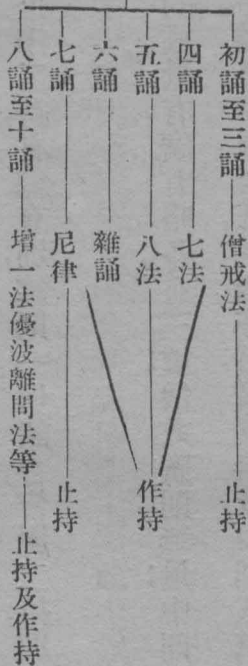 初誦至三誦——僧戒法——止持
四誦——七法
五誦——八法——作持
六誦——雜誦
七誦——尼律——止持
八誦至十誦——增一法優波離問法等——止持及作持